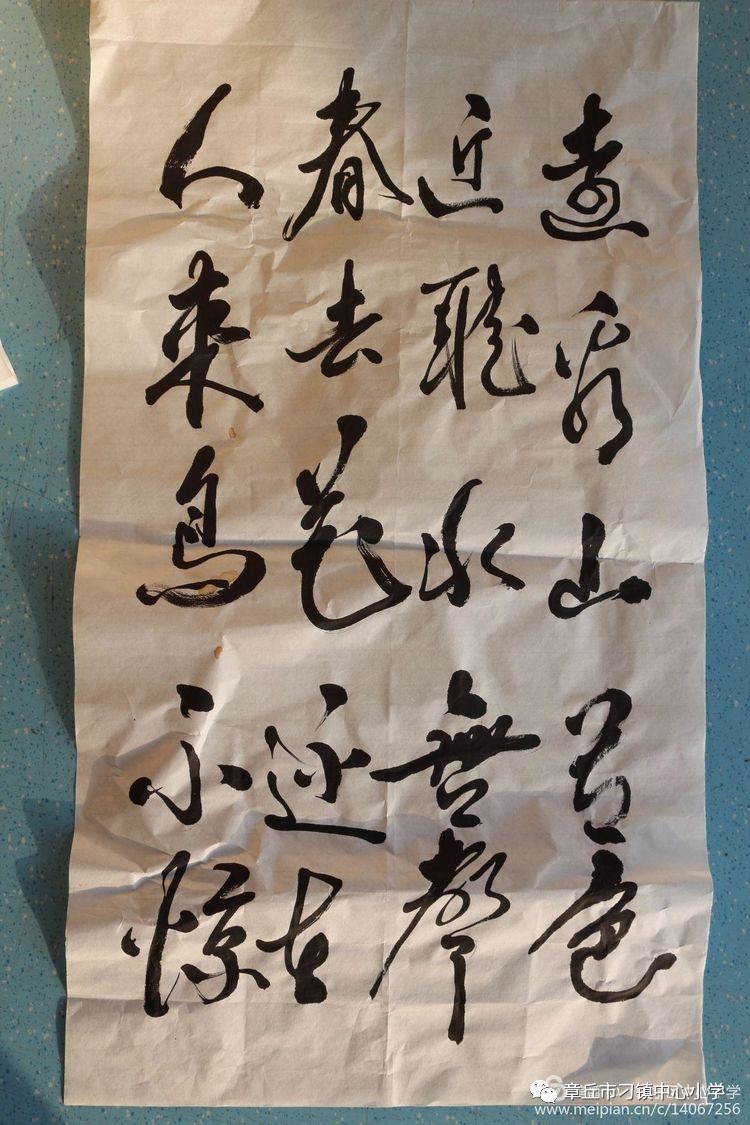 遠看山有色
近聽水無聲
春去花还在
人来鳥不惊
章丘市刁镇中心小学
www.meipian.cn/c/14067256